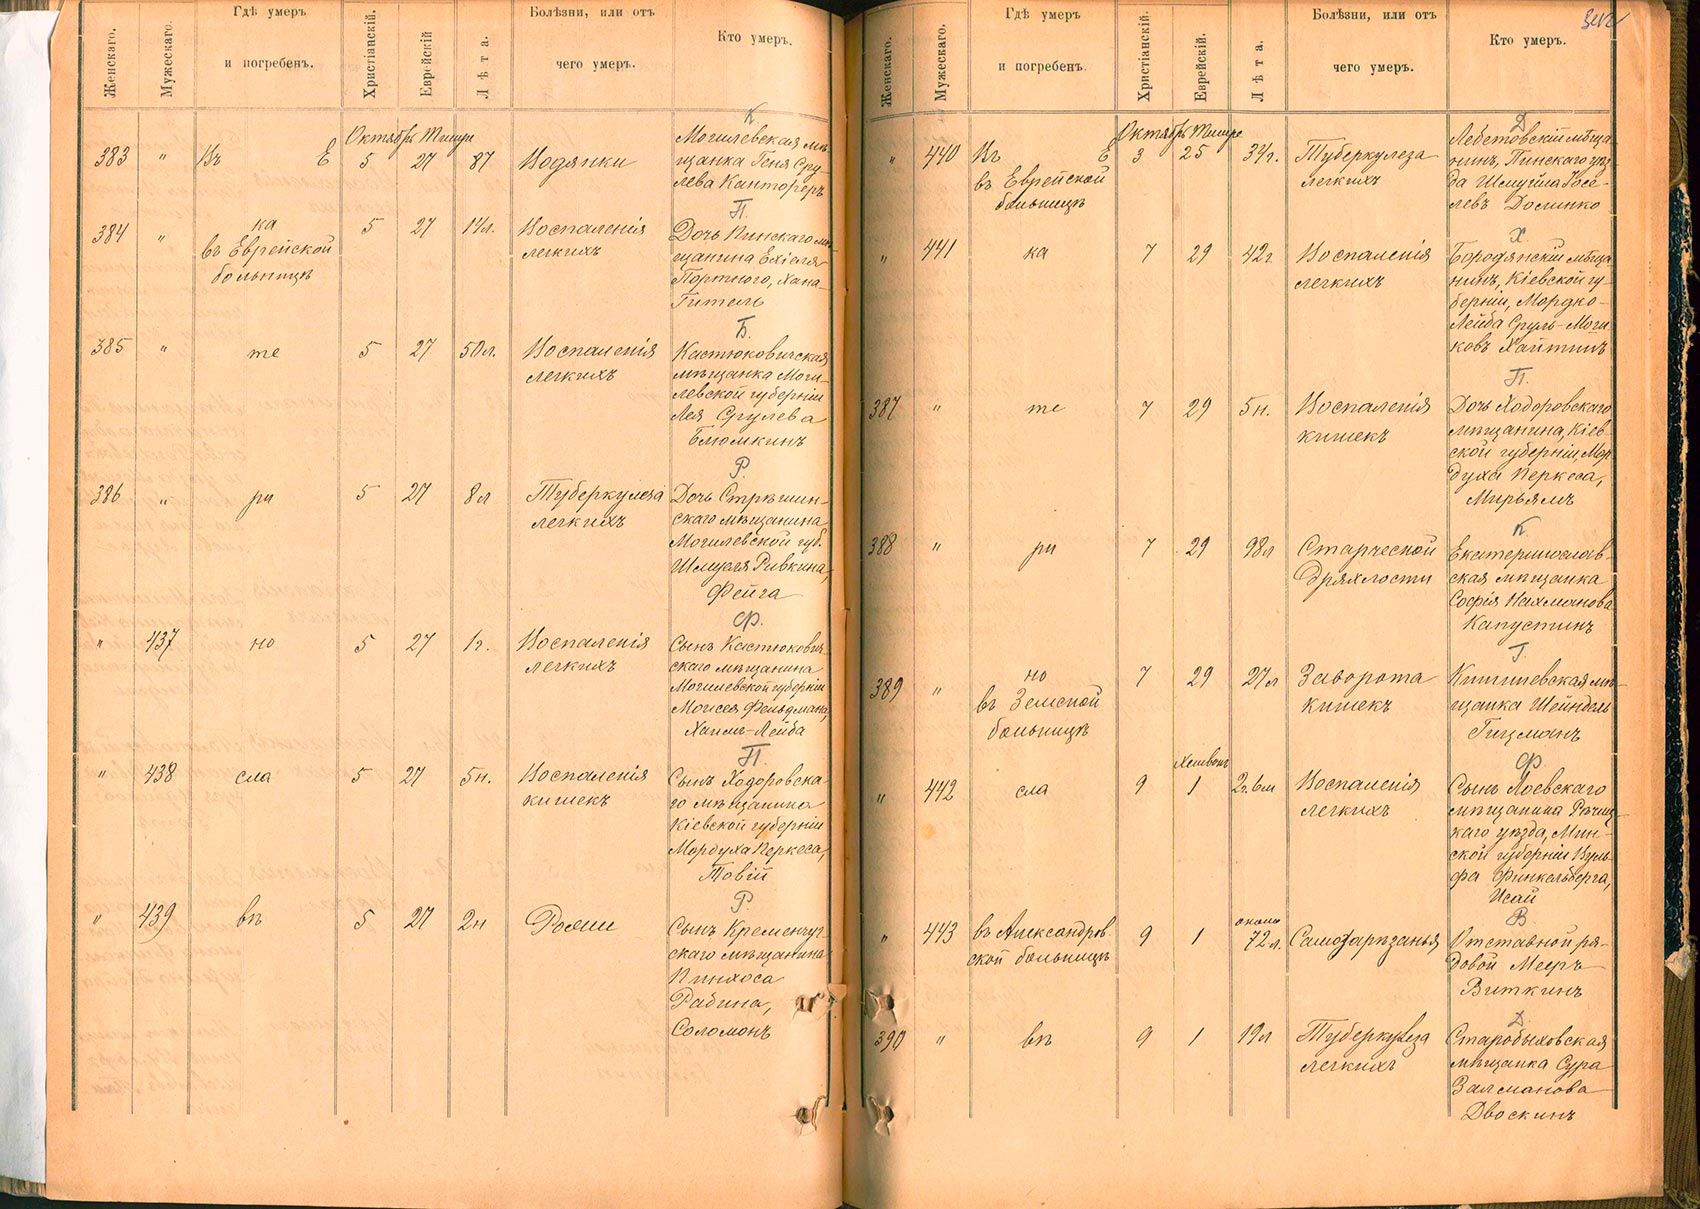 Женскаго.
Мужескаго.
Гдѣ умеръ
и погребенъ.
Христіанскій.
Еврейскій
Лѣта.
Болѣзни, или отъ
чего умеръ.
Кто умеръ.
К.
Октябрь Тишре
383 " Въ Е 5 27 87 Водянки
Могилевская мѣ-
щанка Геня Сру-
лева Кантореръ
П.
384 " ка 5 27 14л. Воспаленія
въ Еврейской легкихъ
больницѣ
Дочь Пинскаго мѣ-
щанина Ехіеля
Портного, Хана-
Гитель
Б.
385 " те 5 27 50л. Воспаленія
легкихъ
Кастюковичская
мѣщанка Моги-
левской губерніи
Лея Срулева
Блюмкинъ
Р.
386 " ри 5 27 8л Туберкулеза
легкихъ
Дочь Стрѣшин-
скаго мѣщанина
Могилевской губ.
Шмуеля Ривкина,
Фейга
Ф.
" 437 но 5 27 1г. Воспаленія
легкихъ
Сынъ Кастюкович-
скаго мѣщанина
Могилевской губерніи
Моисея Фельдмана,
Хаимъ-Лейба
П.
" 438 сла 5 27 5н. Воспаленія
кишекъ
Сынъ Ходоровска-
го мѣщанина
Кіевской губерніи
Мордуха Перкеса,
Товій
Р.
" 439 въ 5 27 2н Рожи
Сынъ Кременчуг-
скаго мѣщанина
Пинхоса
Рабина,
Соломонъ
Женскаго.
Мужескаго.
Гдѣ умеръ
и погребенъ.
Христіанскій.
Еврейскій.
Лѣта.
Болѣзни, или отъ
чего умеръ.
Кто умеръ.
Д
Октябрь Тишре
" 440 Въ Е 3 25 34г. Туберкулеза
въ Еврейской легкихъ
больницѣ
мѣща-
нинъ, Пинскаго уѣз-
да Шмуйла Іосе-
левъ Долинко
Х.
" 441 ка 7 29 42г. Воспаленія
легкихъ
Бородянскій мѣща-
нинъ, Кіевской гу-
берніи, Мордко-
Лейба Сруль-Моги-
ковъ Хайтинъ
П.
387 " те 7 29 5н. Воспаленія
кишекъ
Дочь Ходоровскаго
мѣщанина, Кіев-
ской губерніи Мор-
духа Перкеса,
Мирьямъ
К.
388 " ри 7 29 98л Старческой
дряхлости
Екатеринослав-
ская мѣщанка
Софія Нахманова
Капустинъ
Г
389 " но 7 29 27л Заворота
въ Земской кишекъ
больницѣ
Кишиневская мѣ-
щанка Шейндель
Гицманъ
Хешвонъ
Ф.
" 442 сла 9 1 2г. 6м Воспаленія
легкихъ
Сынъ Лоевскаго
мѣщанина Рѣчиц-
каго уѣзда, Мин-
ской губерніи Вуль-
фа Финкельберга,
Исай
В
около
" 443 въ Александров- 9 1 72л.
ской больницѣ
Отставной ря-
довой Мееръ
Виткинъ
Д.
390 " въ 9 1 19л Туберкулеза
легкихъ
Старобыховская
мѣщанка Сура
Залманова
Двоскинъ